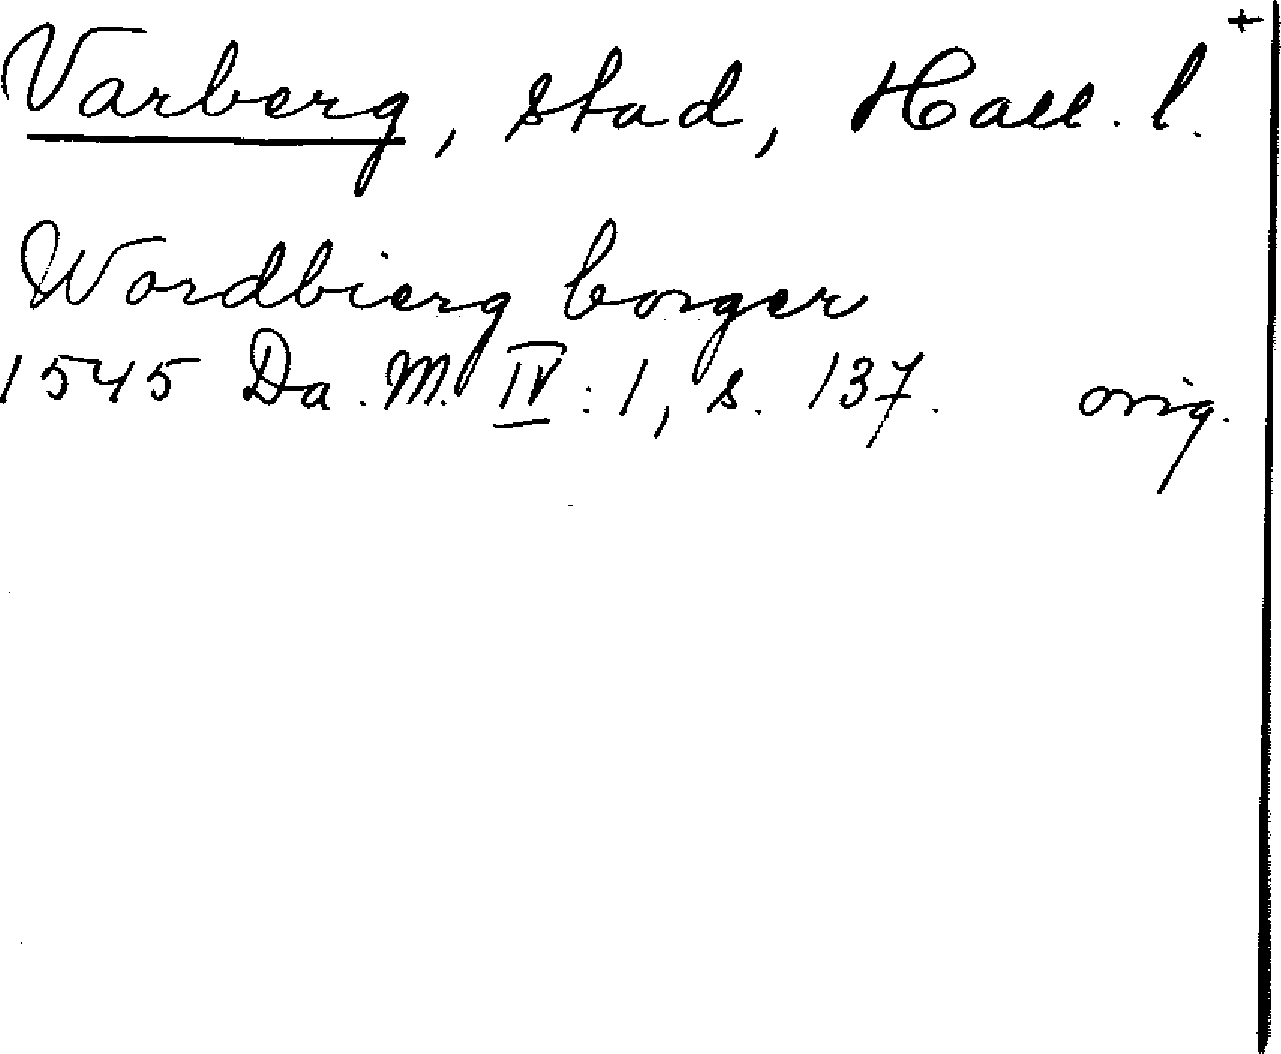 Varberg, stad, Hall. l. +
Wordbierg borger
1545 Da. M. IV: 1, s. 137. orig.